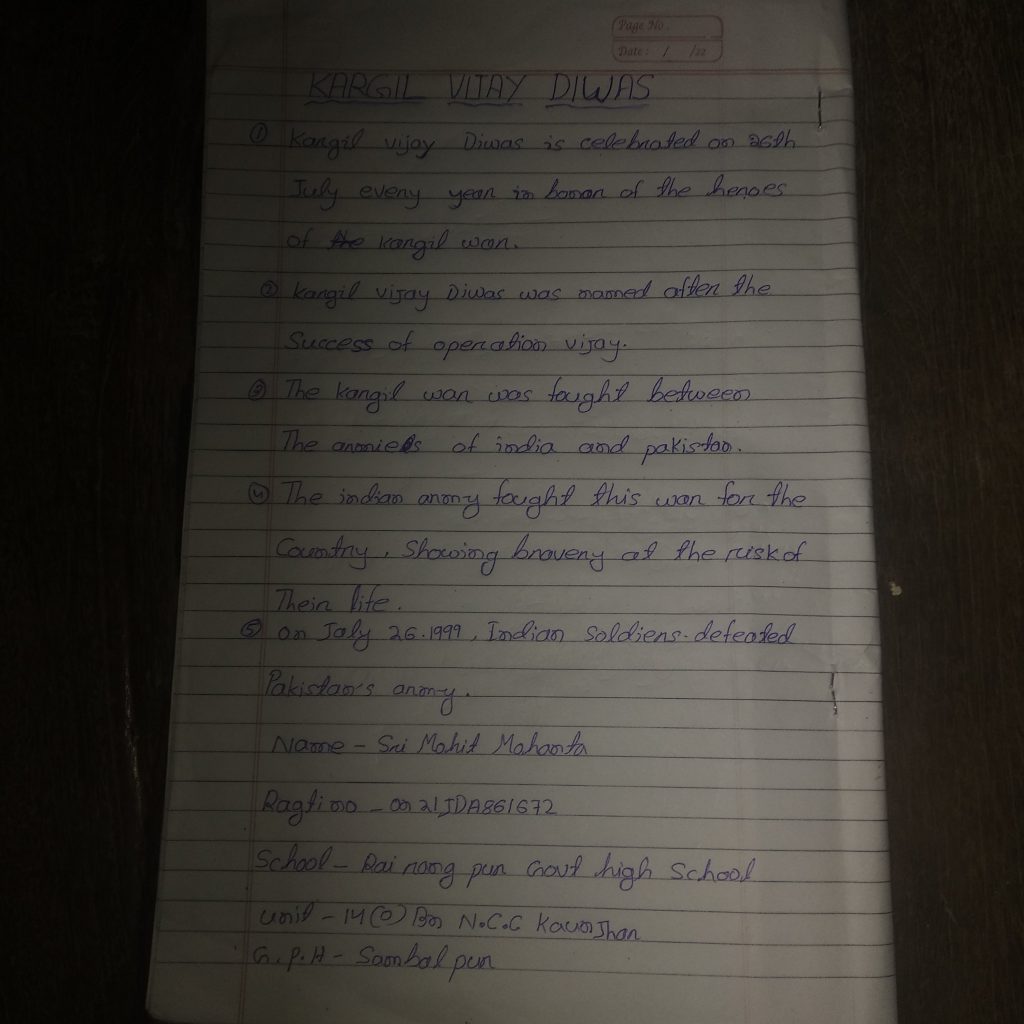 Page No.
Date: / /20
KARGIL VIJAY DIWAS
① Kargil vijay Diwas is celebrated on 26th
July every year in honor of the heroes
of the Kargil war.
② Kargil vijay Diwas was named after the
Success of operation vijay.
③ The Kargil war was fought between
The armies of india and pakistan.
④ The indian army fought this war for the
Country, Showing bravery at the risk of
Their life.
⑤ on July 26.1999, Indian Soldiers defeated
Pakistan's army.
Name - Sri Mohit Mohanta
Ragti no - on 21JDA861672
School - Rai nang pur Govt high School
unit - 14 (O) Bn N.C.C
G.P.H - Sambalpur